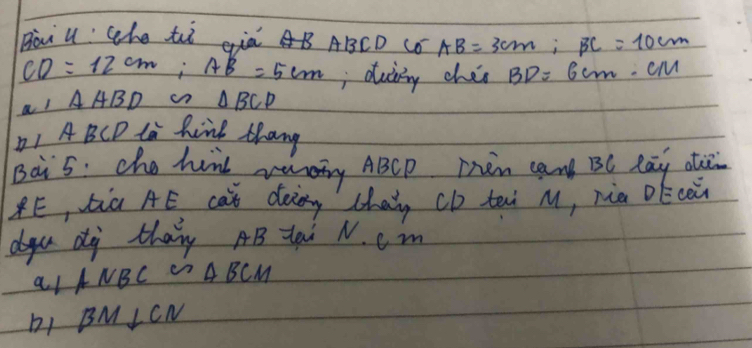 Bài 4: Cho tứ giá AB ABCD có AB = 3cm ; BC = 10cm
CD = 12 cm ; AB = 5cm ; đường chéo BD = 6cm . CM
a) Δ ABD ∽ ΔBCD
b) ABCD là hình thang
Bài 5: Cho hình vuông ABCD Trên cạnh BC lấy điểm
E, tia AE cắt đường thẳng CD tại M, Tia DE cắt
đg thẳng AB tại N. cm
a) ΔNBC ∽ ΔBCM
b) BM ⊥ CN